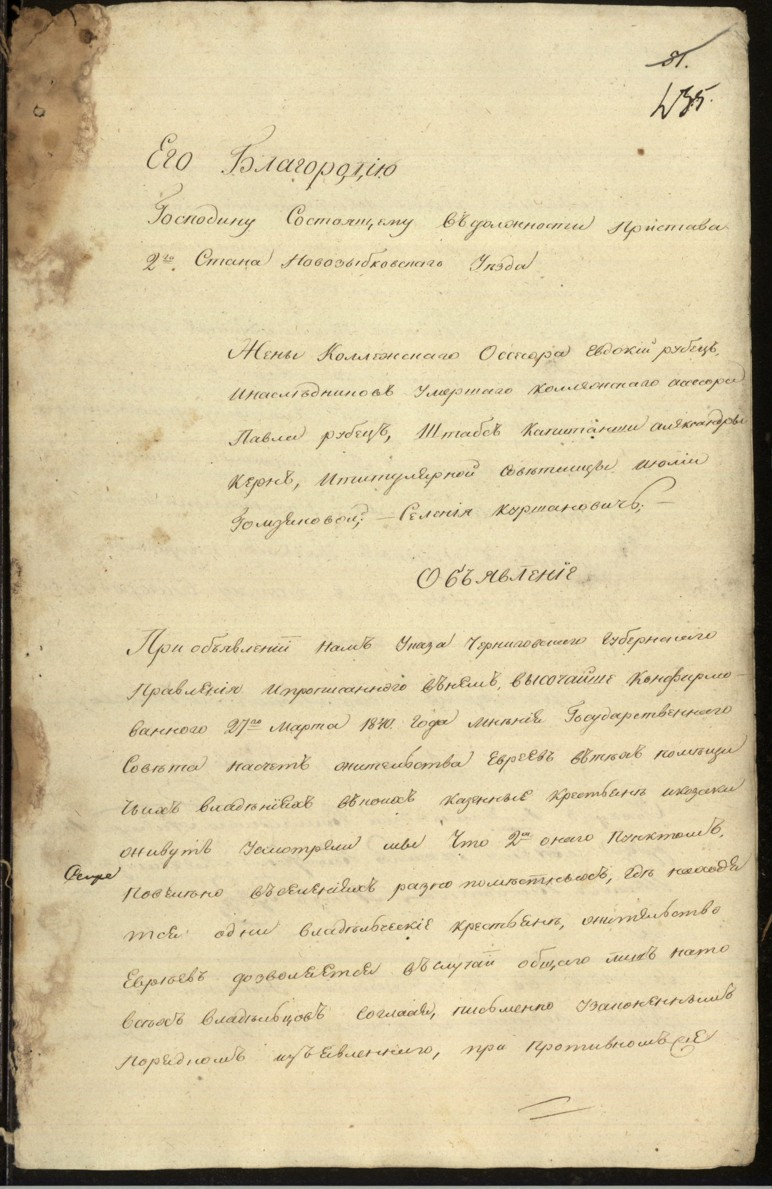 81.
435.
Его Благородію
Господину Состоящему въдолжности Пристава
2го. Стана Новозыбковскаго Уезда
Жены Коллежскаго Осесора Евдокіи рубецъ,
инаследниковъ Умершаго Коллежскаго асесора
Павла рубецъ, Штабсъ Капитанши александры
Кернъ, ититулярной советницы июліи
Гомзяковой; — Ксенія Куртановичъ; —
Объявленіе
При объявленіи намъ Указа Черниговскаго Губернскаго
Правленія ипрописаннаго внемъ, высочайше Конфирмо-
ваннаго 27го Марта 1840. Года мненія Государственнаго
Совета насчетъ жительства Евреевъ втехъ помещи
чьихъ владенияхъ вкоихъ казенные крестьяне иказаки
живутъ Усмотрели мы Что 2мъ онаго Пунктомъ,
Повелено въселенияхъ разно поместныхъ, где находя
тся одни владельческіе крестьяне, жительство
Евреевъ дозволяется въслучаи общаго тихъ нато
всехъ владельцовъ согласія, письменно Узаконеннымъ
Порядкомъ изъявленнаго, при противномъ же